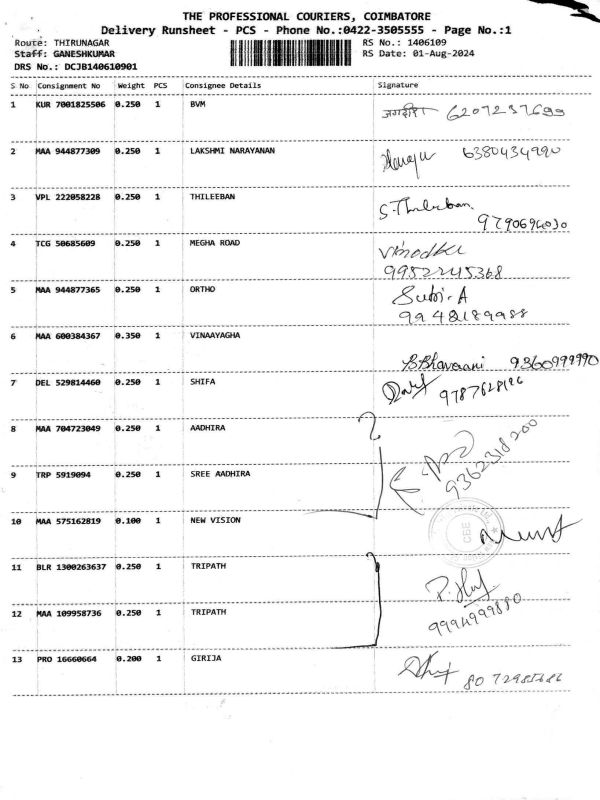 THE PROFESSIONAL COURIERS, COIMBATORE
Delivery Runsheet - PCS - Phone No.:0422-3505555 - Page No.:1
Route: THIRUNAGAR RS No.: 1406109
Staff: GANESHKUMAR RS Date: 01-Aug-2024
DRS No.: DCJB140610901
S No Consignment No Weight PCS Consignee Details Signature
1 KUR 7001825506 0.250 1 BVM जगदीश 6207237699
2 MAA 944877309 0.250 1 LAKSHMI NARAYANAN 6380434990
3 VPL 222058228 0.250 1 THILEEBAN S.Thileeban.
9790694030
4 TCG 50685609 0.250 1 MEGHA ROAD
9952245368
5 MAA 944877365 0.250 1 ORTHO Subi.A
9948189988
6 MAA 600384367 0.350 1 VINAAYAGHA
B.Bhavaani 9360999990
7 DEL 529814460 0.250 1 SHIFA
9787628126
8 MAA 704723049 0.250 1 AADHIRA
9362318200
9 TRP 5919094 0.250 1 SREE AADHIRA
10 MAA 575162819 0.100 1 NEW VISION
CBE
11 BLR 1300263637 0.250 1 TRIPATH
12 MAA 109958736 0.250 1 TRIPATH
9994999880
13 PRO 16660664 0.200 1 GIRIJA